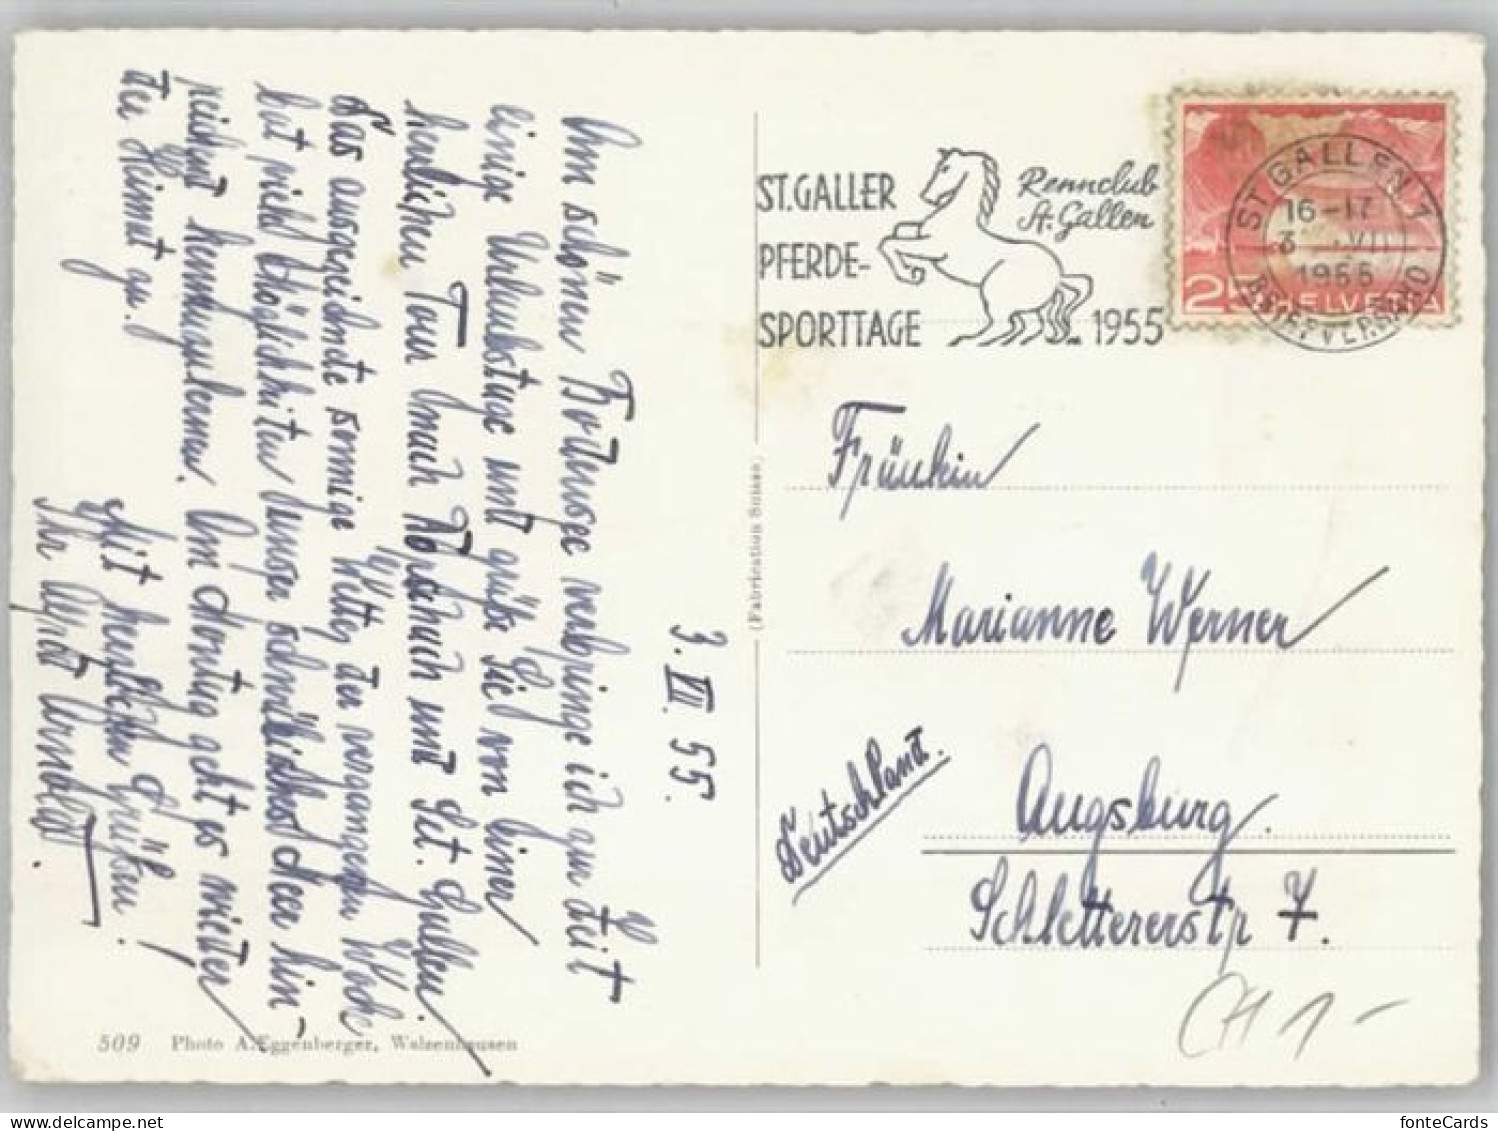 3. VII. 55.
Am schönen Bodensee verbringe ich zur Zeit
einige Urlaubstage und grüße Sie von einer
herrlichen Tour nach Rorschach und Set. Gallen.
Das ausgezeichnete sonnige Wetter der vergangenen Woche
bot viele Möglichkeiten unser schwäbisches Meer hin-
reichend kennenzulernen. Am Montag geht es wieder
der Heimat zu.
Mit herzlichen Grüßen!
Ihr Alfred Arnold.
509 Photo A. Eggenberger, Walzenhausen
(Fabrication Suisse)
ST. GALLER
PFERDE-
SPORTTAGE
Rennclub
St. Gallen
1955
ST GALLEN 1
16-17
3. VII
1955
BRIEFVERSAND
25 HELVETIA
Fräulein
Marianne Werner
Augsburg.
Schlettererstr 7.
Deutschland.
CH 1-
fonteCards